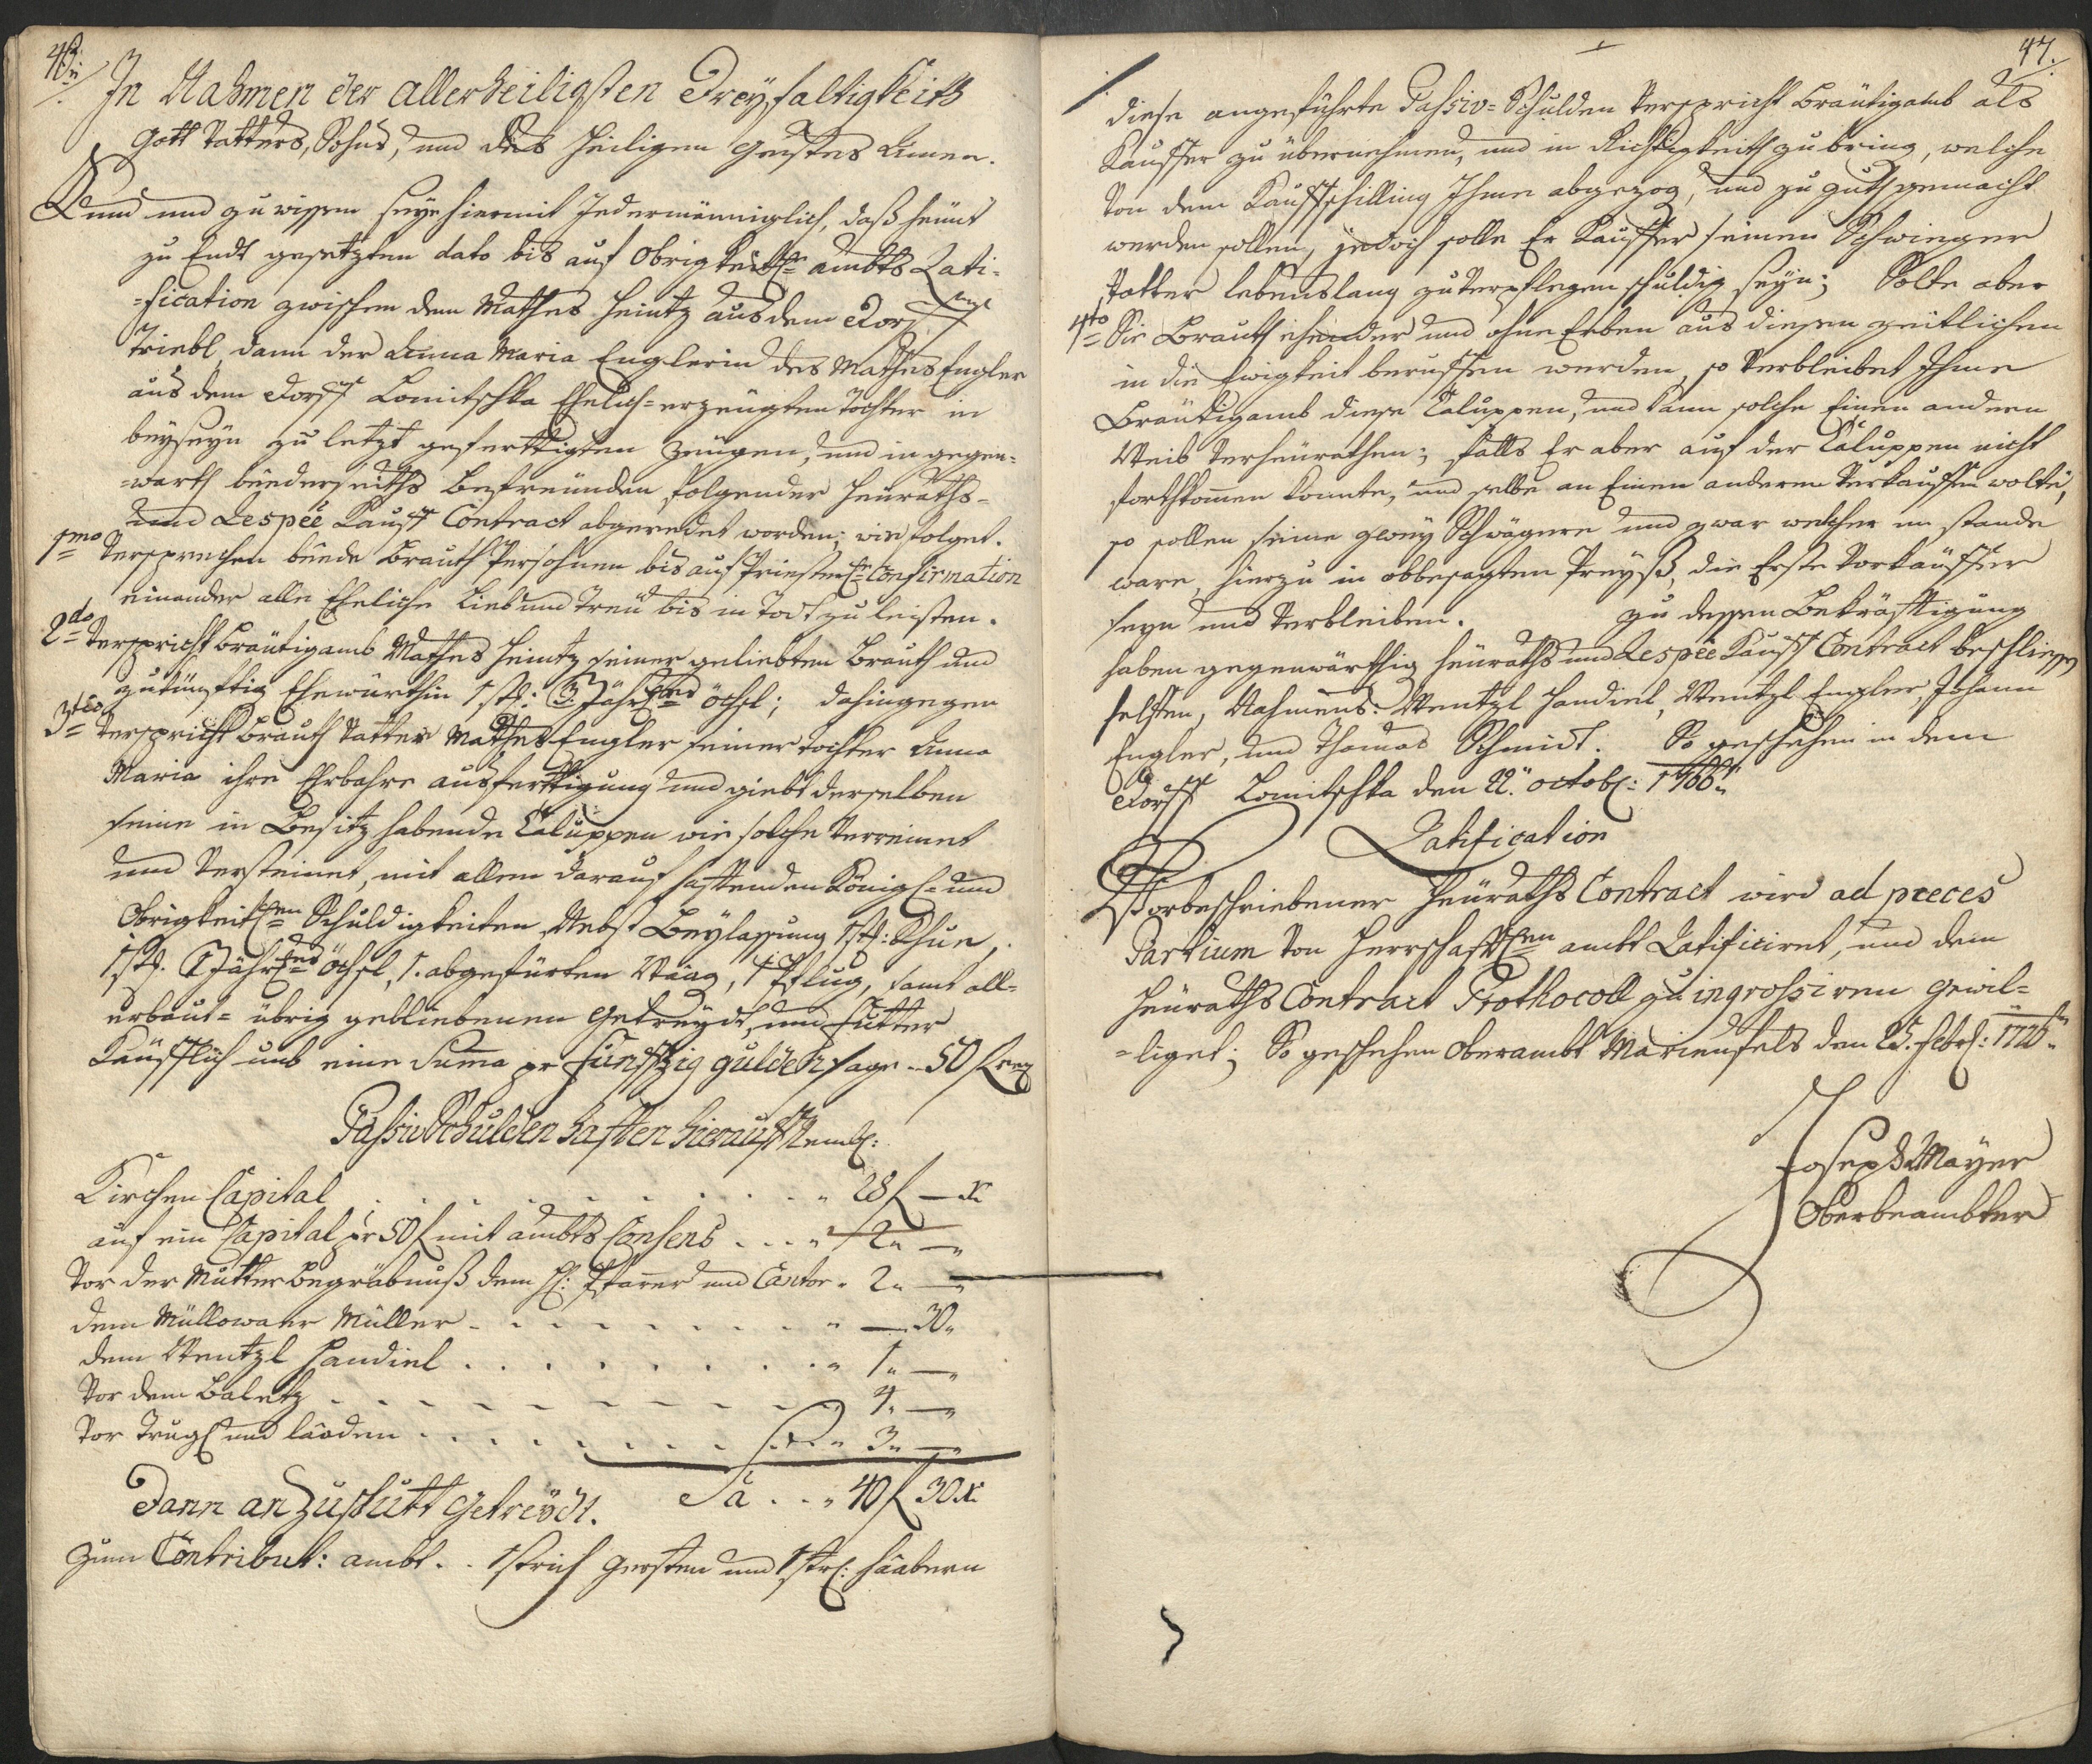 46.
In Nahmen der allerheiligsten Dreyfaltigkeits
Gott Vatters, Sohns, und des heiligen Geistes Amen.
Kund und zu wissen seye hiermit Jedermänniglich, daß heünt
zu Endt gesetzten dato bis auf Obrigkeitl: ambts Rati-
=fication zwischen dem Mathes Heintz aus dem Dorff
Triebl, dann der Anna Maria Englerin des Mathes Engler
aus dem Dorff Lomitschka Ehelich=erzeügten Tochter in
beyseyn zu letzt geferttigten Zeügen, und in gegen=
=warth beederseiths Befreünden folgender Heüraths-
und Respeè Kauff Contract abgeredet worden; wie folget.
1mo Versprechen beede Brauth Persohnen bis auf Priesterl: Confirmation
einander alle Eheliche Lieb und Treü bis in Todt zu leisten.
2do Verspricht Bräutigamb Mathes Heintz seiner geliebten Brauth und
zukünfftig Ehewürthin 1 st: 3 Jährl: öchsl; dahingegen
3tio Verspricht Brauth Vatter Mathes Engler seiner Tochter Anna
Maria ihre Ehrbahre ausferttigung und giebt derselben
seine in Besitz habende Caluppen wie solche Verreinet
und Versteinet, mit allem darauf hafftenden Königl= und
Obrigkeitlen Schuldigkeiten, Nebst Beylassung 1 st: Khue,
1 st. 2 Jährl: öchsl, 1. abgefürten Waag, 1 Pflug, samt all=
erbaut= übrig gebliebenen Getreydt, und Futter
Kaüfflich umb eine Suma pr Fünffzig gulden sage .. 50 f
Passiv Schulden hafften hierauf Neml:
Kirchen Capital . . . . . . . . . " 28 f — x
auf ein Capital pr 50 f mit ambts Consens . . . . " 2 " — "
Vor der Mutter Begräbnuß dem H: Pfarrer und Cantor . 2 " — "
dem Müllowaer Müller . . . . . . . . " — 30 "
dem Wentzl Handiel . . . . . . . . . " 1 " — "
Vor dem Baletz . . . . . . . . . . 4 " — "
Vor Trugl und laaden . . . . . . . . " 3 " — "
Sa . . " 40 f 30 x
Dann an Zuschütt Getreydt.
Zum Contribut: ambt . . 1 strich Gersten und 1 str: haabern
47.
diese angeführte Passiv=Schulden Verspricht Bräutigamb als
Kauffer zu übernehmen, und in Richtigkeith zu bring, welche
Von dem Kauffschilling Ihme abgezog, und zu guth gemacht
werden sollen, jedoch solle Er Kauffer seinen Schwieger
Vatter lebenslang zu Verpflegen schuldig seyn; Solte aber
4to Die Brauth ehender und ohne Erben aus diesen zeitlichen
in die Ewigkeit beruffen werden, so Verbleibet Ihme
Bräutigamb diese Caluppen, und kann solche Einen andern
Weib Verheürathen; falls Er aber auf der Caluppen nicht
forthkommen konnte, und selbe an Einen anderen Verkauffen wolte,
so sollen seine zwey Schwägere und zwar welcher im stande
ware, hierzu in obbesagten Preyß, die Erste Vorkäuffer
seyn und Verbleiben. Zu dessen Bekräfftigung
haben gegenwärthig Heüraths und Respeè Kauff Contract beschliessen
helffen, Nahmens: Wentzl Handiel, Wentzl Engler, Johann
Engler, und Thomas Schmidt. So geschehen in dem
Dorff Lomitschka den 22. octobr: 1766.
Ratification
Vorbeschriebener Heüraths Contract wird ad preces
Partium Von Herrschafftlen ambt Ratificiret, und dem
Heüraths Contract Prothocoll zu ingrossiren gewil-
=liget; So geschehen Oberambt Marienfels den 25. Febr:
Joseph Mayer
Oberbeambter